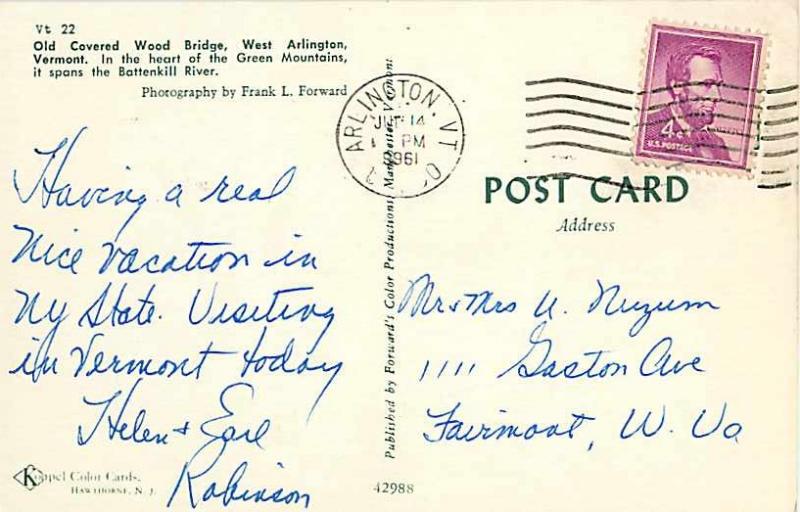 Vt 22
Old Covered Wood Bridge, West Arlington,
Vermont. In the heart of the Green Mountains,
it spans the Battenkill River.
Photography by Frank L. Forward
Having a real
nice vacation in
Ny State. Visiting
in Vermont today
Helen & Earl
Robinson
Koppel Color Cards.
HAWTHORNE, N. J.
Published by Forward's Color Productions, Manchester, Vermont
42988
ARLINGTON, VT
14
PM
1961
4¢
U.S. POSTAGE
POST CARD
Address
Mr & Mrs U. Nuzum
1111 Gaston Ave
Fairmont, W. Va